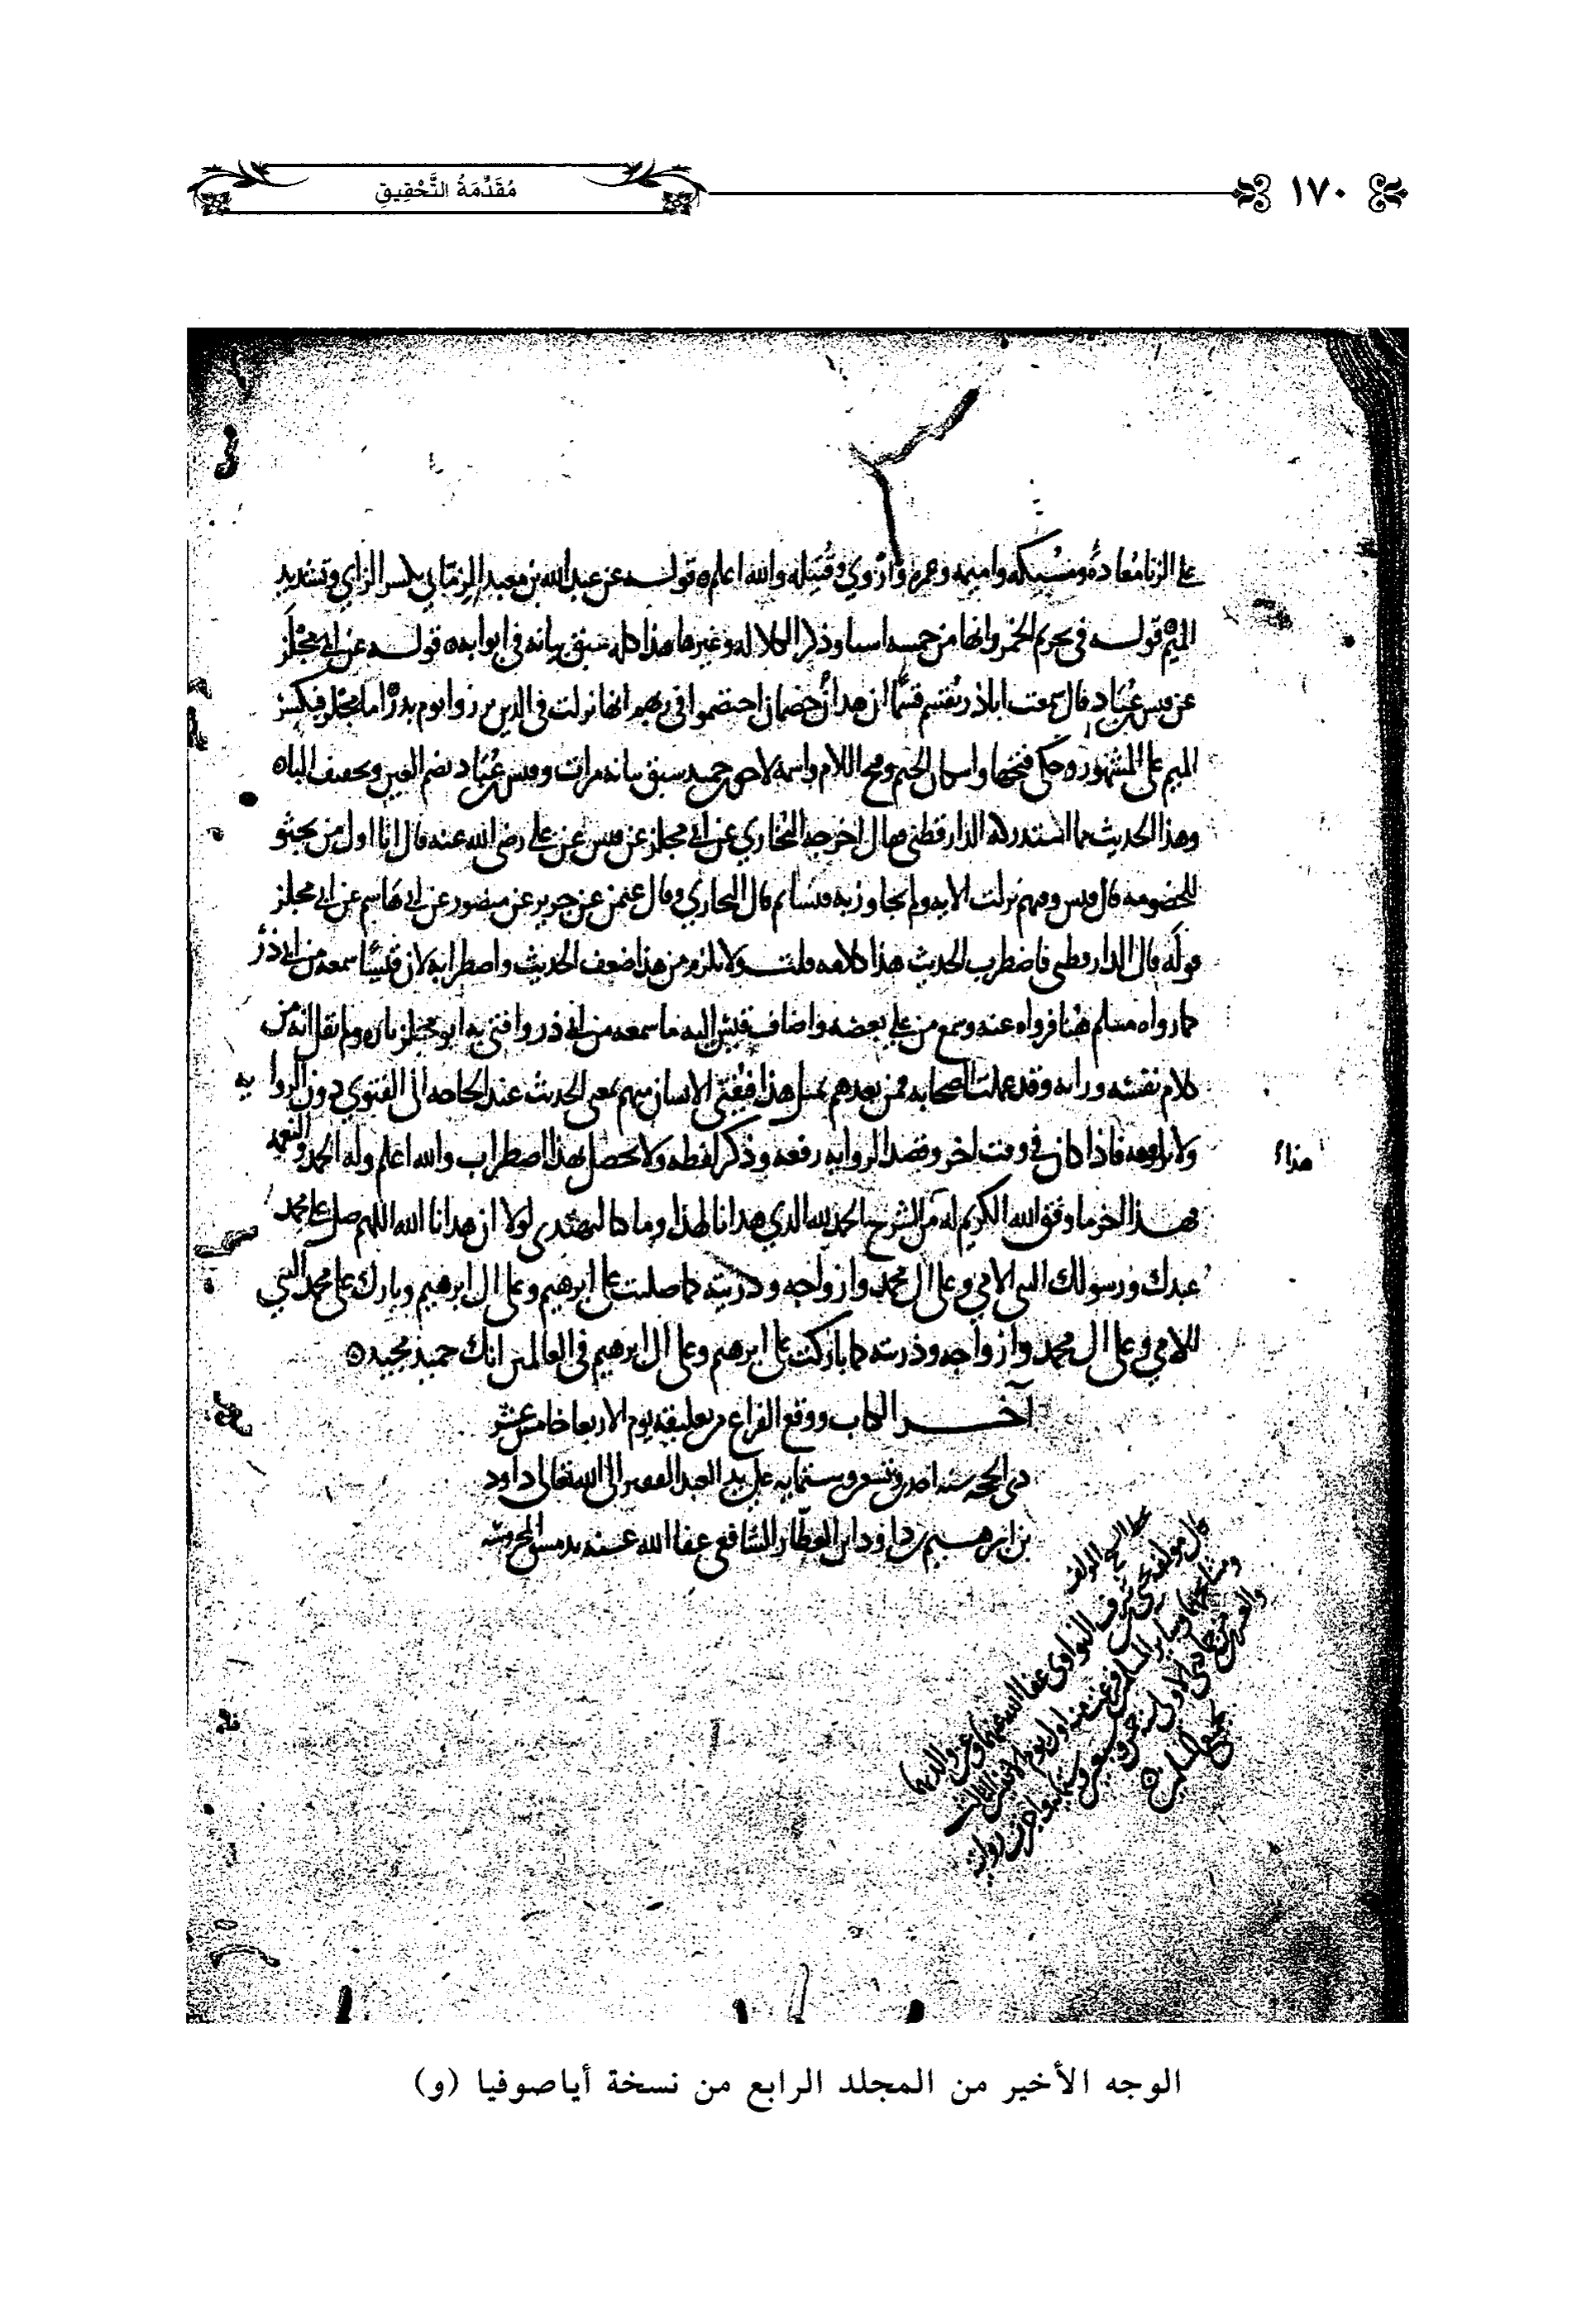 ١٧٠
مُقَدِّمَةُ التَّحْقِيقِ
على الزنا معاذة ومسيكة واميمة وعمرة واروي وقتيلة والله اعلم قوله عن عبد الله بن معبد الزماني بكسر الزاي وتشديد
الميم قوله في تحريم الخمر وانها من خمسه اسيا وذكر الكلاله وغيرها هذا كله سبق بيانه في ابوابه قوله عن ابي مجلز
عن قيس بن عباد قال سمعت اباذر يقسم قسما ان هذان خصمان اختصموا في ربهم انها نزلت في الذين برزوا يوم بدر اما مجلز فبكسر
الميم على المشهور وحكي فتحها واسكان الجيم وفتح اللام واسمه لاحق بن حميد سبق بيانه مرات وقيس بن عباد بضم العين وتخفيف الباء
وهذا الحديث مما استدركه الدارقطني فقال اخرجه البخاري عن ابي مجلز عن قيس عن علي رضي الله عنه قال انا اول من يجثو
للخصومه قال قيس وفيهم نزلت الايه ولم يجاوز به قيسا ثم قال البخاري وقال عثمن عن جرير عن منصور عن ابي هاشم عن ابي مجلز
قوله قال الدارقطني فاضطرب الحديث هذا كلامه قلت ولا يلزم من هذا ضعف الحديث واضطرابه لان قيسا سمعه من ابي ذر
كما رواه مسلم هنا فرواه عنه وسمع من علي بعضه واضاف قيس اليه ما سمعه من ابي ذر وافتى به ابو مجلز تاره ولم يقل انه من
كلام نفسه ورايه وقد عملت الصحابه فمن بعدهم بمثل هذا فيفتي الانسان منهم بمعنى الحديث عند الحاجه الى الفتوى دون الروايه
ولا يرفعه فاذا كان في وقت اخر وقصد الروايه رفعه وذكر لفظه ولا يحصل بهذا اضطراب والله اعلم وله الحمد والنعمه
هذا
فهذا اخر ما وفق الله الكريم له من الشرح الحمد لله الذي هدانا لهذا وما كنا لنهتدي لولا ان هدانا الله اللهم صل على محمد
عبدك ورسولك النبي الامي وعلى ال محمد وازواجه وذريته كما صليت على ابرهيم وعلى ال ابرهيم وبارك على محمد النبي
الامي وعلى ال محمد وازواجه وذريته كما باركت على ابرهيم وعلى ال ابرهيم في العالمين انك حميد مجيد
آخر الكتاب ووقع الفراغ من تعليقه يوم الاربعا خامس عشر
ذي الحجه سنه احدى وتسعين وستمايه على يد العبد الفقير الى الله تعالى داود
بن ابرهيم بن داود ابن العطار الشافعي عفا الله عنه بدمشق المحروسه
قال مولفه يحيى بن شرف النواوي عفا الله عنهما وعن والديهما
ومشايخهما وساير المسلمين فرغت منه اول يوم الاثنين الثالث
والعشرين من جمادى الاولى سنة وسبعين وستمايه
الوجه الأخير من المجلد الرابع من نسخة أياصوفيا (و)